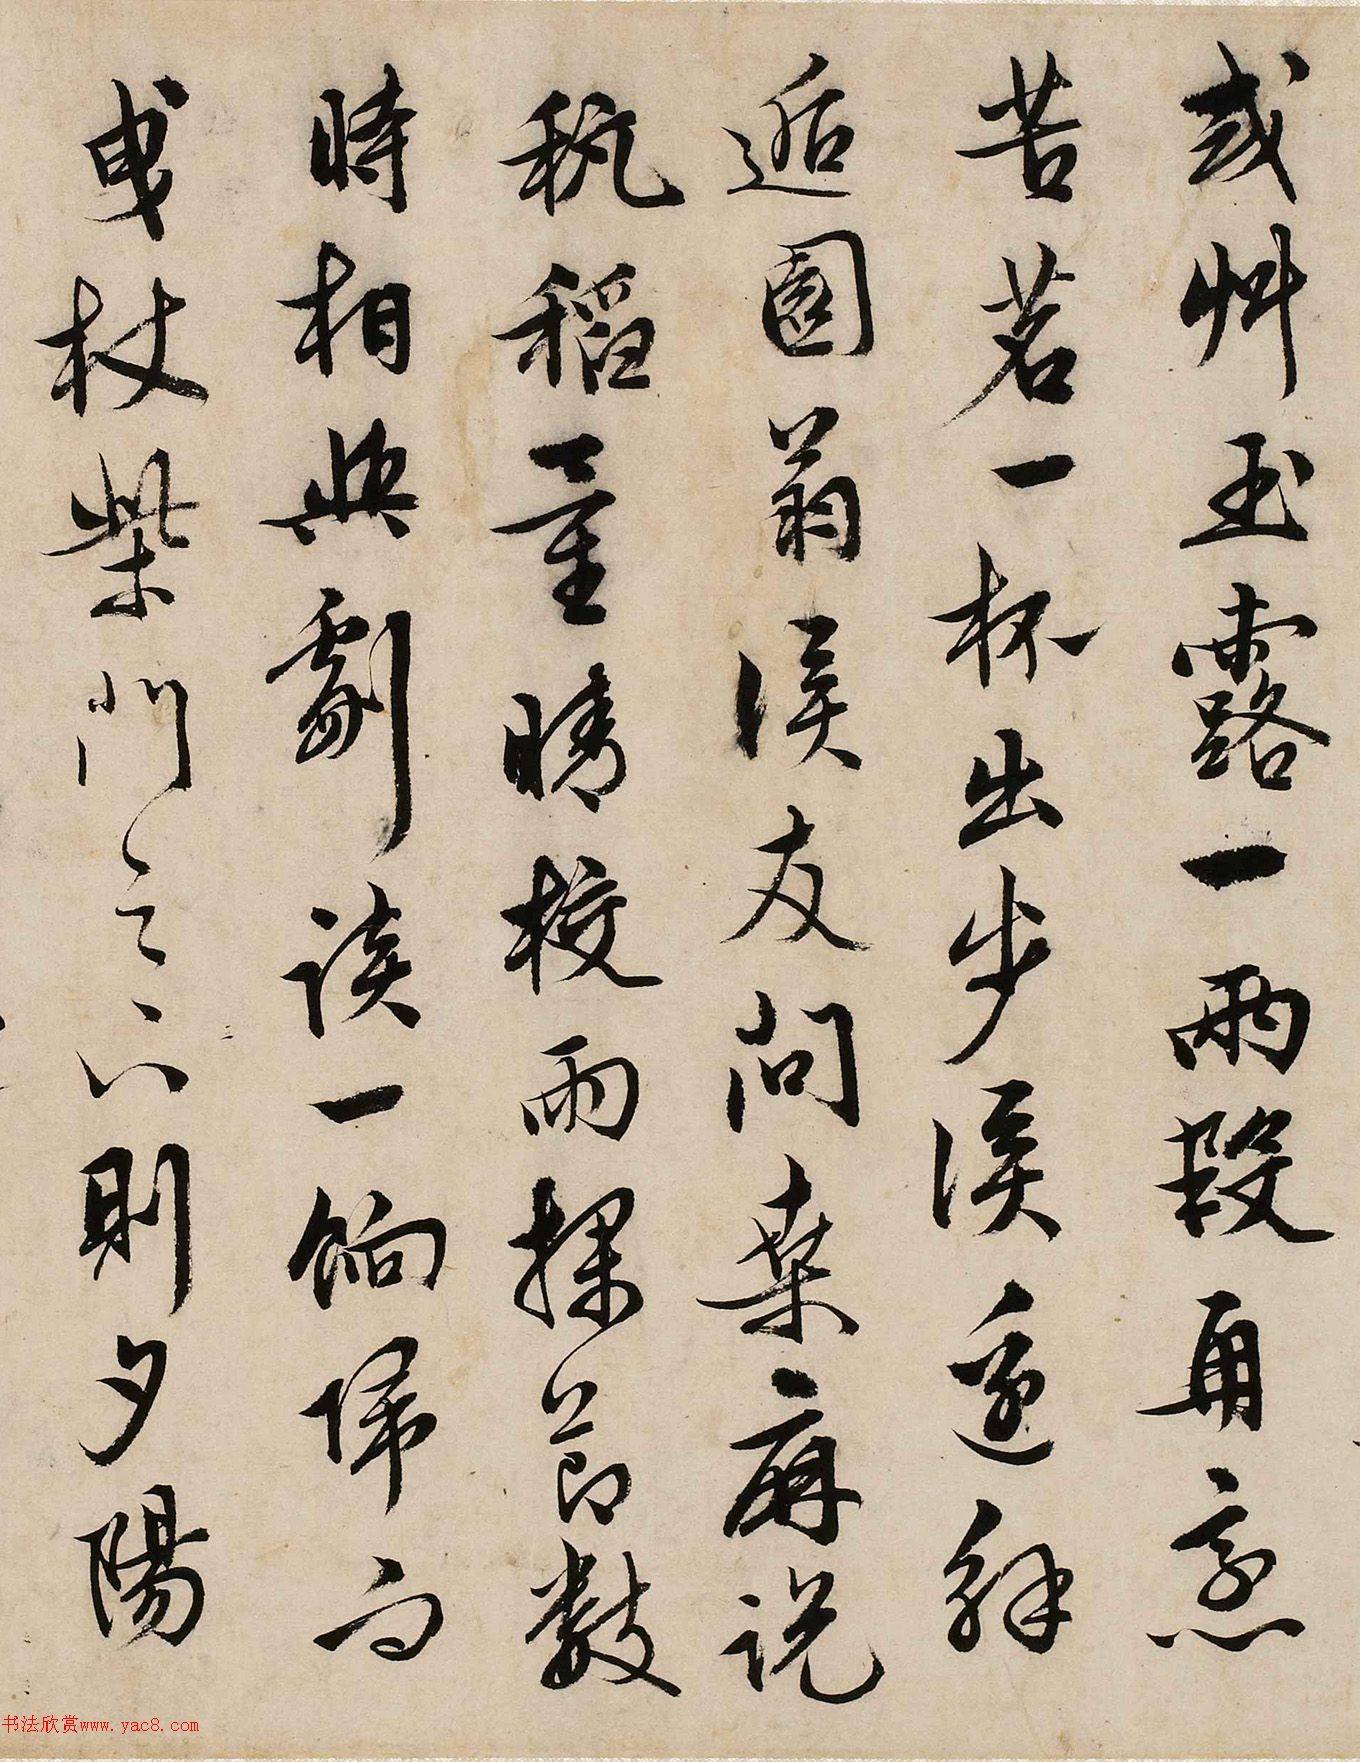 或艸玉露一兩段再烹
苦茗一杯出步溪邊解
逅園翁溪友問桑麻說
秔稻量晴校雨探節數
時相與劇談一餉歸而
曳杖柴門之下則夕陽
书法欣赏www.yac8.com